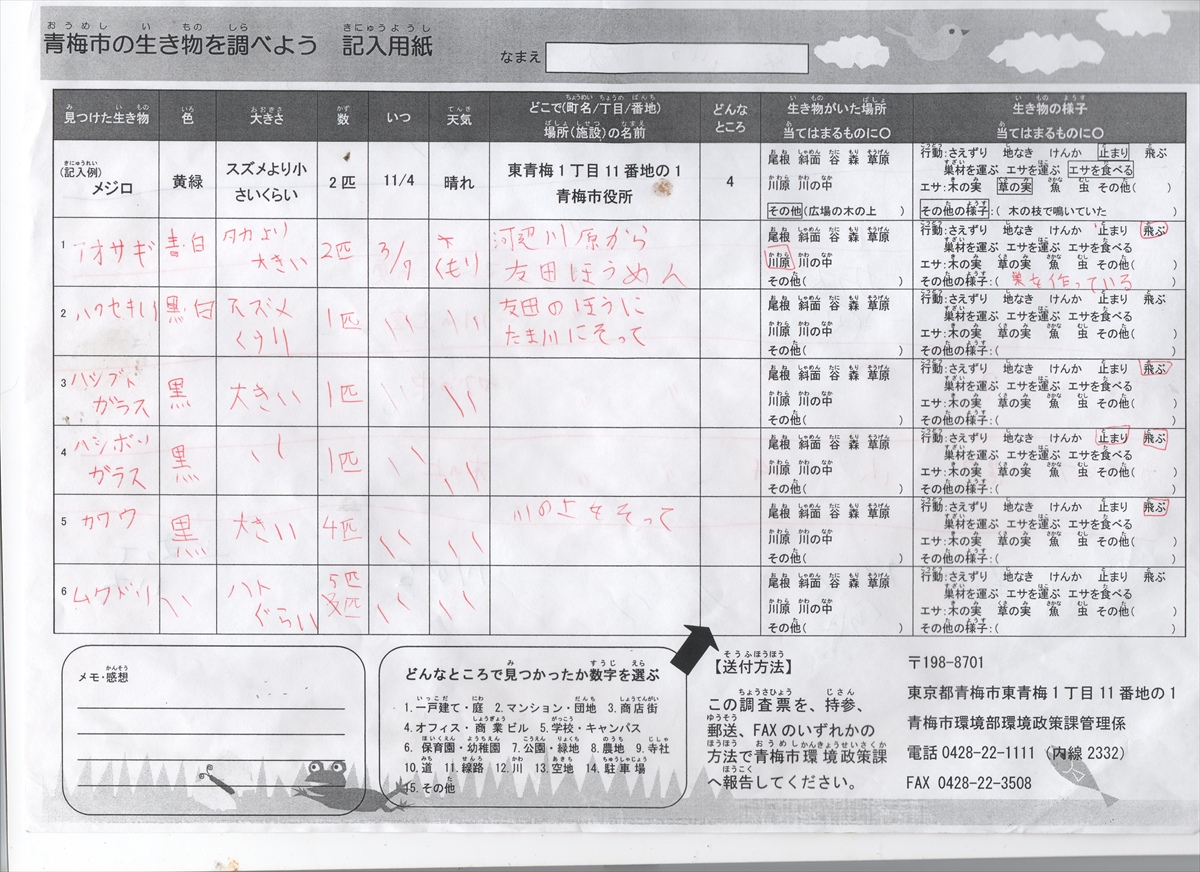 青梅市の生き物を調べよう 記入用紙
なまえ
見つけた生き物 色 大きさ 数 いつ 天気 どこで(町名/丁目/番地) 場所(施設)の名前 どんなところ 生き物がいた場所 当てはまるものに○ 生き物の様子 当てはまるものに○
(記入例) メジロ 黄緑 スズメより小さいくらい 2匹 11/4 晴れ 東青梅1丁目11番地の1 青梅市役所 4
尾根 斜面 谷 森 草原
川原 川の中
その他(広場の木の上 )
行動:さえずり 地なき けんか 止まり 飛ぶ
巣材を運ぶ エサを運ぶ エサを食べる
エサ:木の実 草の実 魚 虫 その他( )
その他の様子:( 木の枝で鳴いていた )
1 アオサギ 青・白 タカより大きい 2匹 3/9 くもり 河辺川原から 友田ほうめん
尾根 斜面 谷 森 草原
川原 川の中
その他( )
行動:さえずり 地なき けんか 止まり 飛ぶ
巣材を運ぶ エサを運ぶ エサを食べる
エサ:木の実 草の実 魚 虫 その他( )
その他の様子:( 巣を作っている )
2 ハクセキレイ 黒・白 スズメくらい 1匹 〃 〃 友田のほうに たま川にそって
尾根 斜面 谷 森 草原
川原 川の中
その他( )
行動:さえずり 地なき けんか 止まり 飛ぶ
巣材を運ぶ エサを運ぶ エサを食べる
エサ:木の実 草の実 魚 虫 その他( )
その他の様子:( )
3 ハシブトガラス 黒 大きい 1匹 〃 〃
尾根 斜面 谷 森 草原
川原 川の中
その他( )
行動:さえずり 地なき けんか 止まり 飛ぶ
巣材を運ぶ エサを運ぶ エサを食べる
エサ:木の実 草の実 魚 虫 その他( )
その他の様子:( )
4 ハシボソガラス 黒 〃 1匹 〃 〃
尾根 斜面 谷 森 草原
川原 川の中
その他( )
行動:さえずり 地なき けんか 止まり 飛ぶ
巣材を運ぶ エサを運ぶ エサを食べる
エサ:木の実 草の実 魚 虫 その他( )
その他の様子:( )
5 カワウ 黒 大きい 4匹 〃 〃 川の上をそって
尾根 斜面 谷 森 草原
川原 川の中
その他( )
行動:さえずり 地なき けんか 止まり 飛ぶ
巣材を運ぶ エサを運ぶ エサを食べる
エサ:木の実 草の実 魚 虫 その他( )
その他の様子:( )
6 ムクドリ 〃 ハトぐらい 5匹 〃 〃
尾根 斜面 谷 森 草原
川原 川の中
その他( )
行動:さえずり 地なき けんか 止まり 飛ぶ
巣材を運ぶ エサを運ぶ エサを食べる
エサ:木の実 草の実 魚 虫 その他( )
その他の様子:( )
メモ・感想
どんなところで見つかったか数字を選ぶ
1.一戸建て・庭 2.マンション・団地 3.商店街
4.オフィス・商業ビル 5.学校・キャンパス
6. 保育園・幼稚園 7.公園・緑地 8.農地 9.寺社
10.道 11.線路 12.川 13.空地 14.駐車場
15.その他
【送付方法】
この調査票を、持参、
郵送、FAXのいずれかの
方法で青梅市環境政策課
へ報告してください。
〒198-8701
東京都青梅市東青梅1丁目11番地の1
青梅市環境部環境政策課管理係
電話 0428-22-1111 (内線 2332)
FAX 0428-22-3508